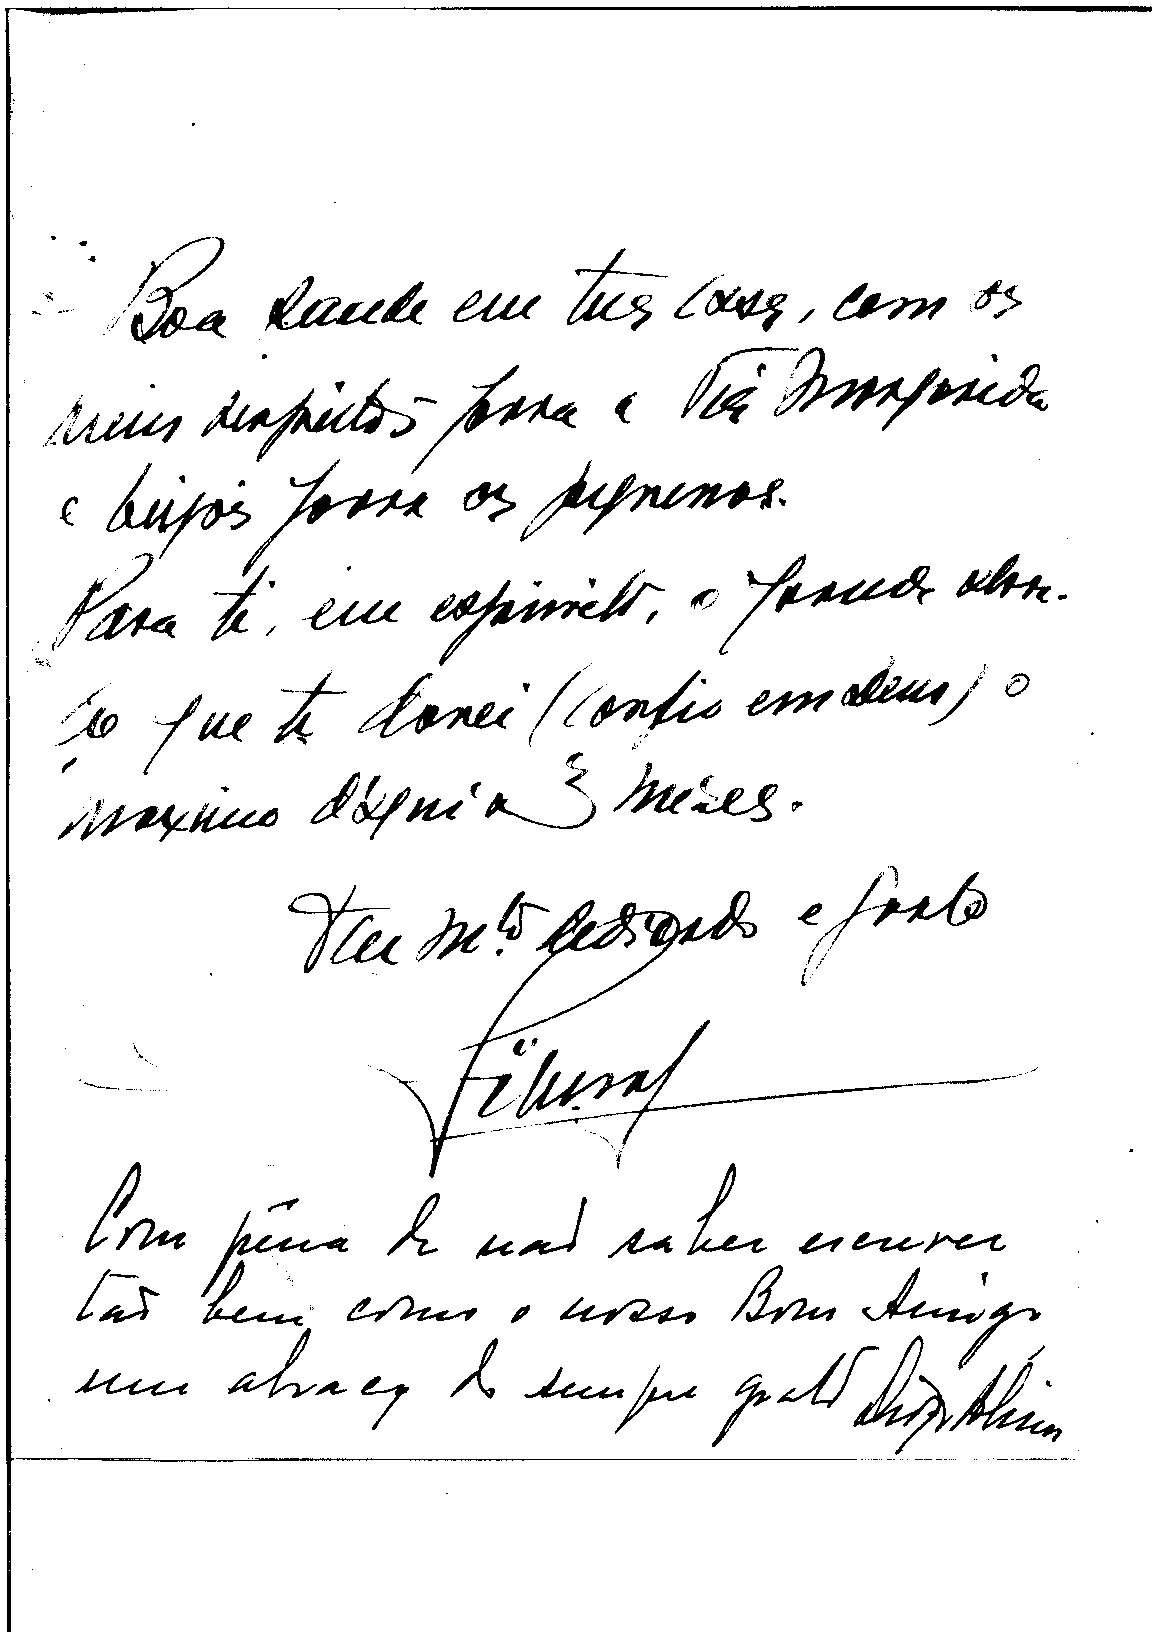 Boa saude em tua casa, com os
meus respeitos para a Tia Margarida
e beijos para os pequenos.
Para ti, em espirito, o grande abra-
ço que te darei (confio em Deus) o
maximo d'aqui a 3 meses.
Teu Mtº dedicado e grato
Com pena de não saber escrever
tão bem como o nosso Bom Amigo,
um abraço do sempre grato